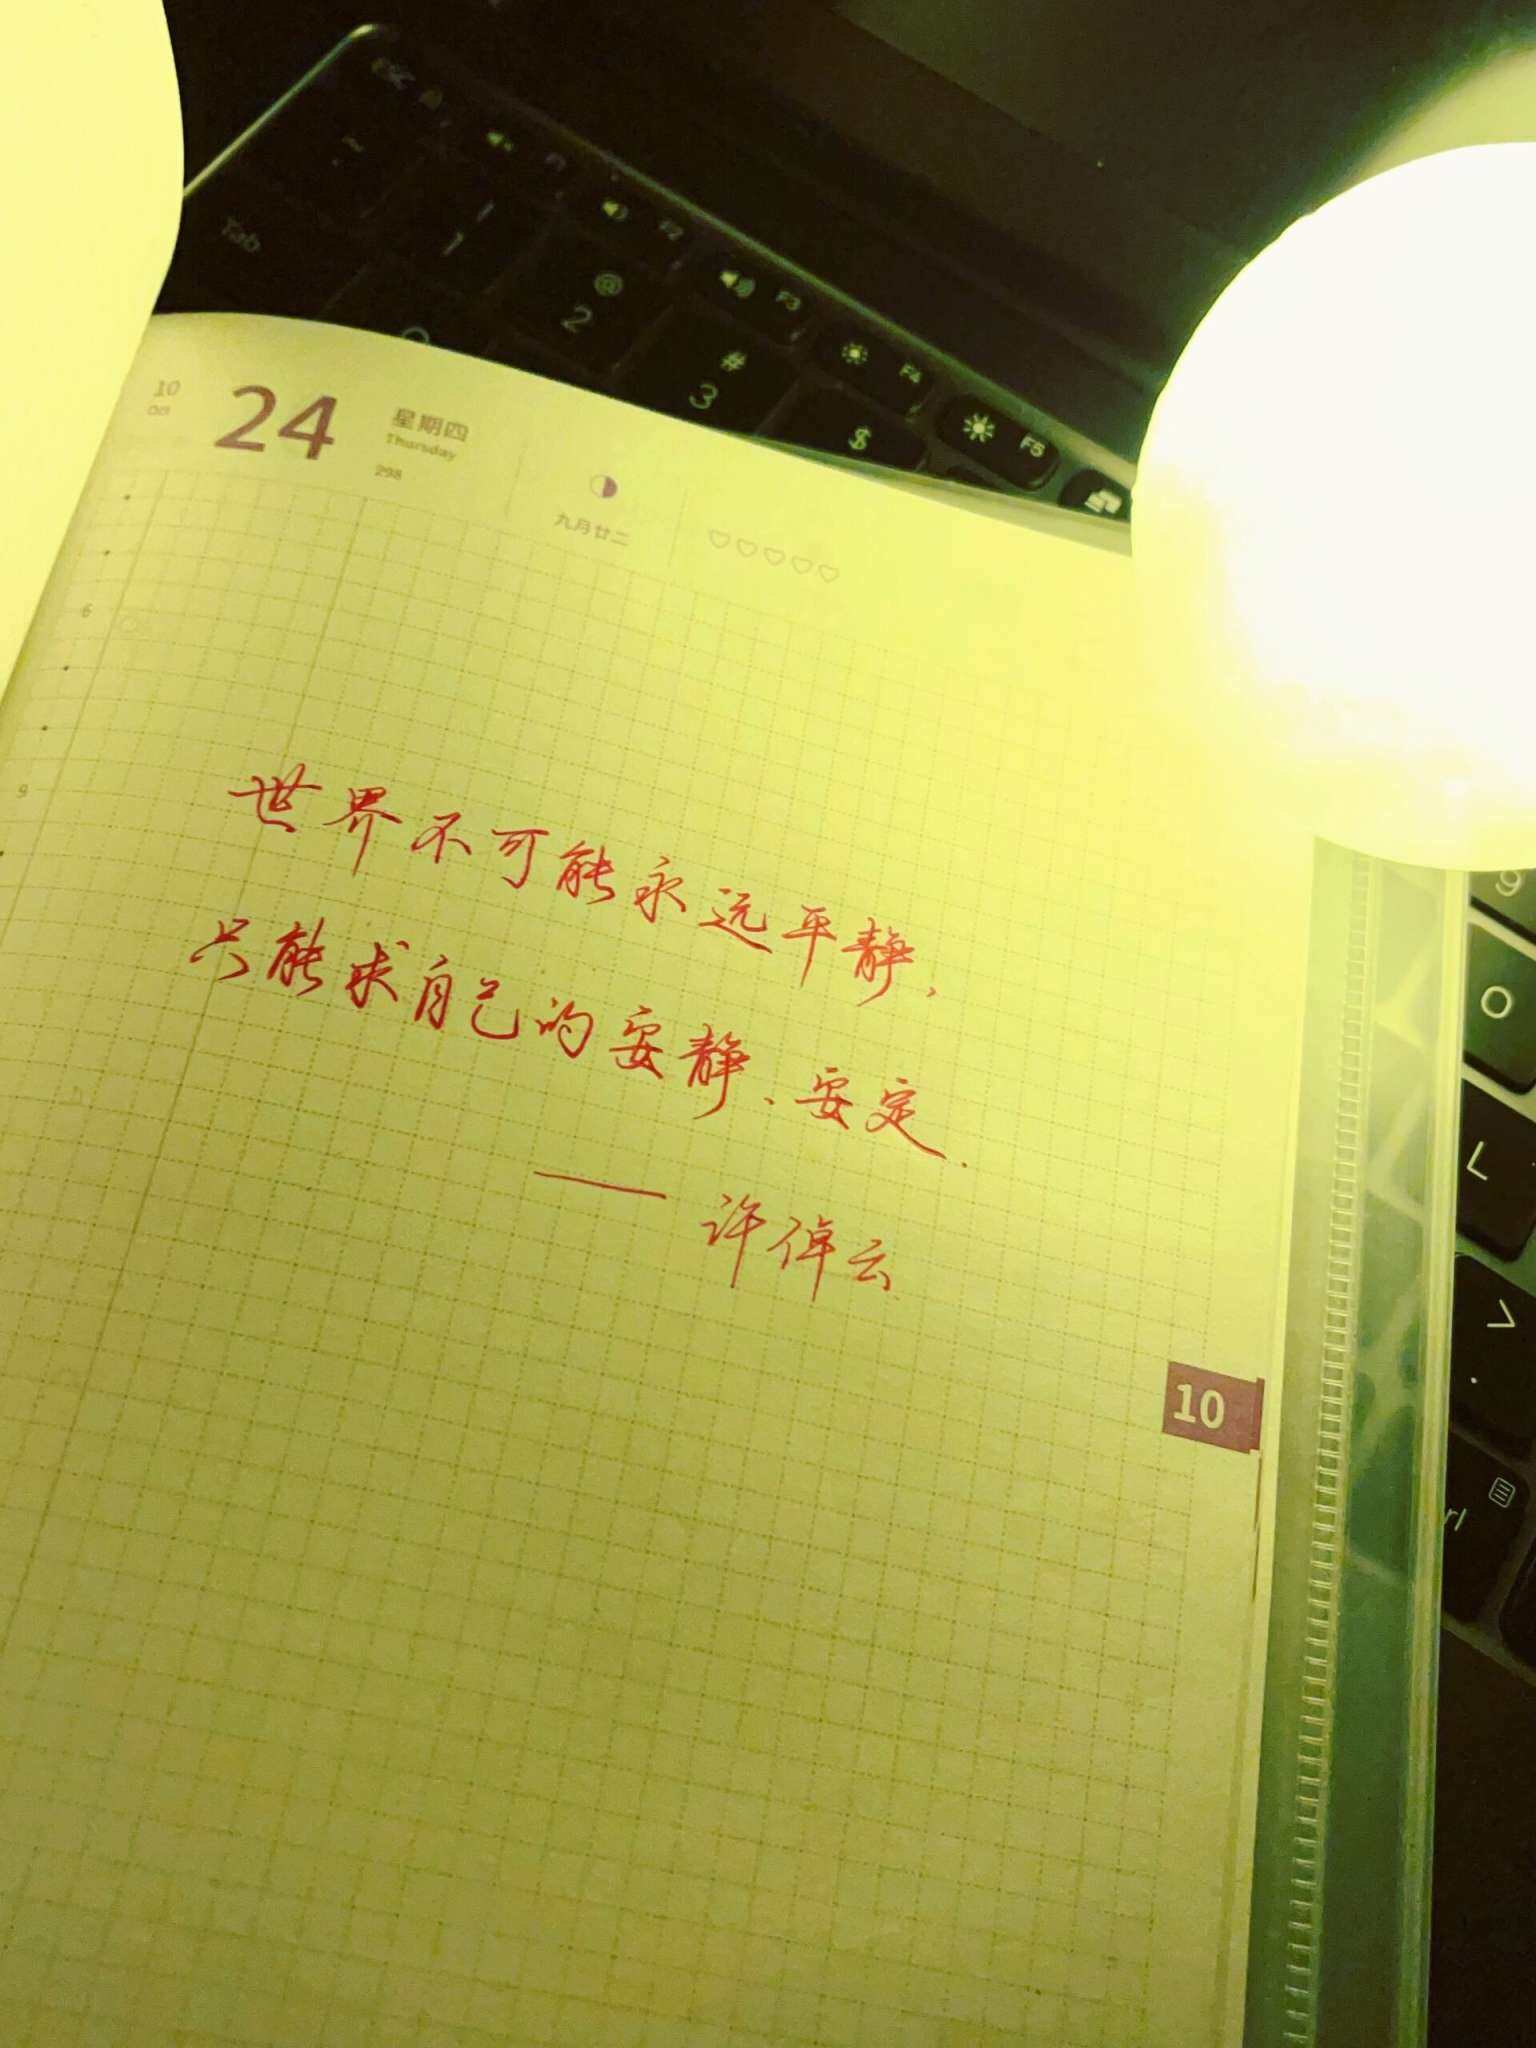 10
Oct
24
星期四
Thursday
298
九月廿二
6
9
世界不可能永远平静，
只能求自己的安静、安定.
——许倬云
10
esc
~
Tab
!
1
@
2
F2
#
3
F3
$
F4
F5
9
O
L
>
.
rl